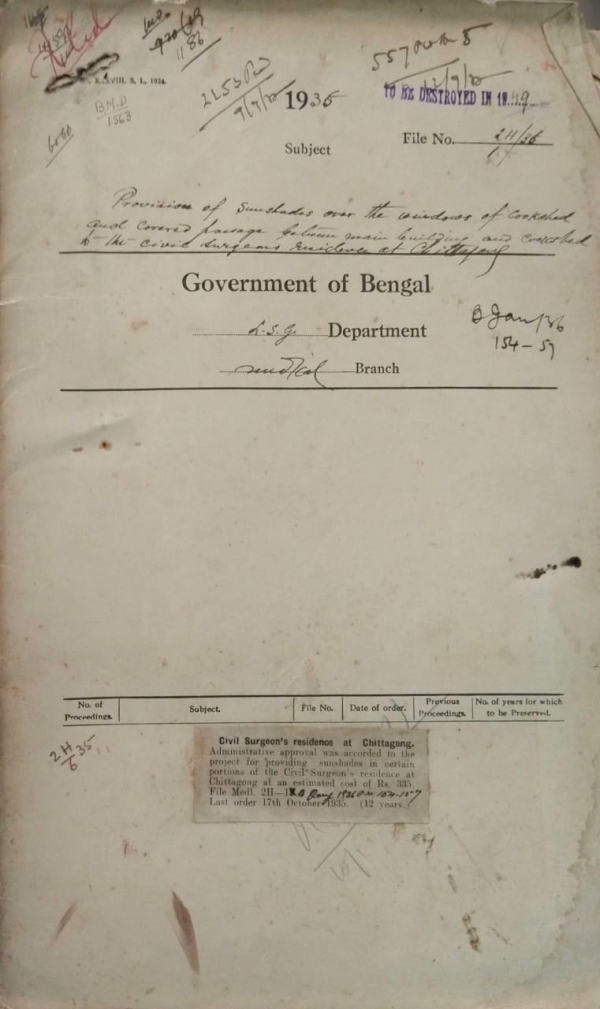 B.M.D
1563
2253
9/9/
1935
TO BE DESTROYED IN 19
File No. 2H/36
Subject
Provision of Sunshades over the windows of cookshed
and covered passage between main building and cookshed
to the civil surgeons residence at Chittagong
Government of Bengal
L.S.G. Department
B Jany/36
154-59
Medical Branch
No. of Proceedings.
Subject.
File No.
Date of order.
Previous Proceedings.
No. of years for which to be Preserved.
2H
6 35
Civil Surgeon's residence at Chittagong.
Administrative approval was accorded to the
project for providing sunshades in certain
portions of the Civil Surgeon's residence at
Chittagong at an estimated cost of Rs. 335.
File Medl. 2H—1
Last order 17th October 1935. (12 years.)